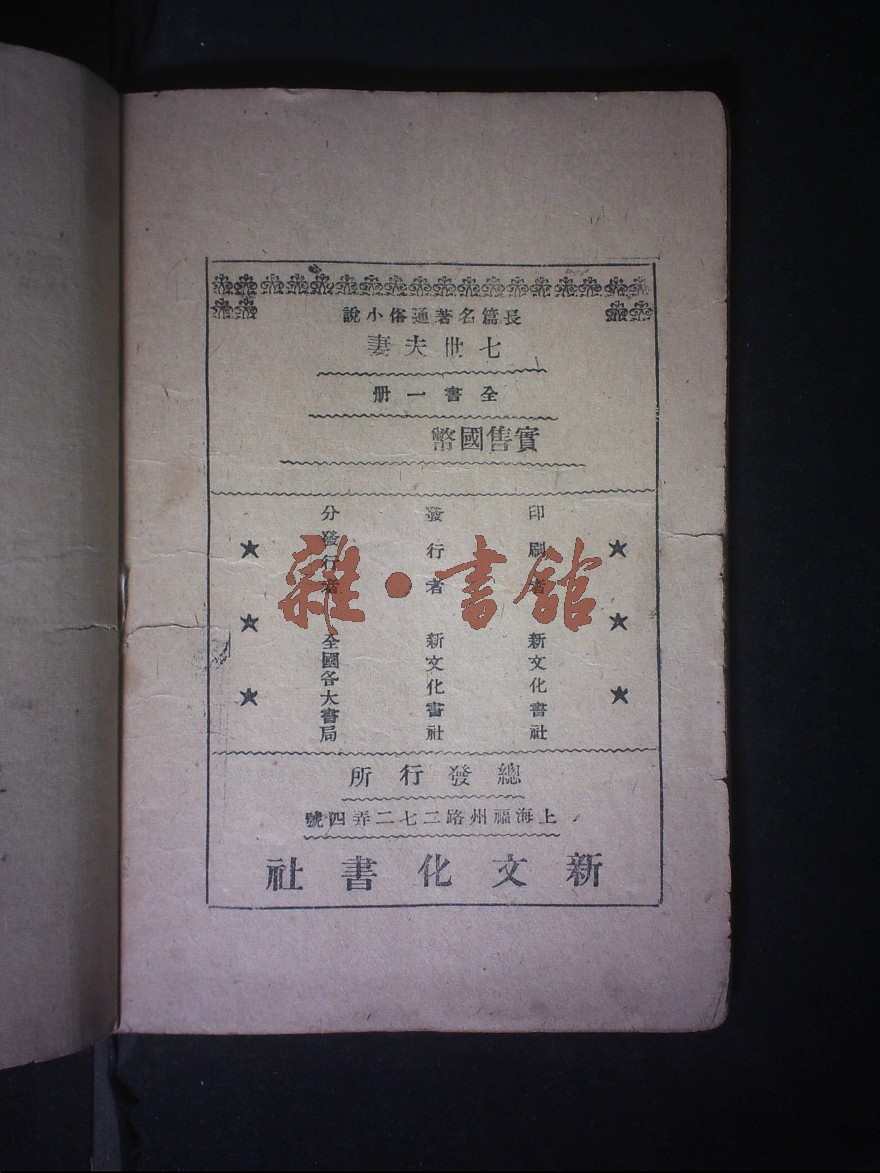 長篇名著通俗小說
七世夫妻
全書一册
實售國幣
印刷者 新文化書社
發行者 新文化書社
分發行者 全國各大書局
總發行所
上海福州路二七二弄四號
新文化書社
雜·書館